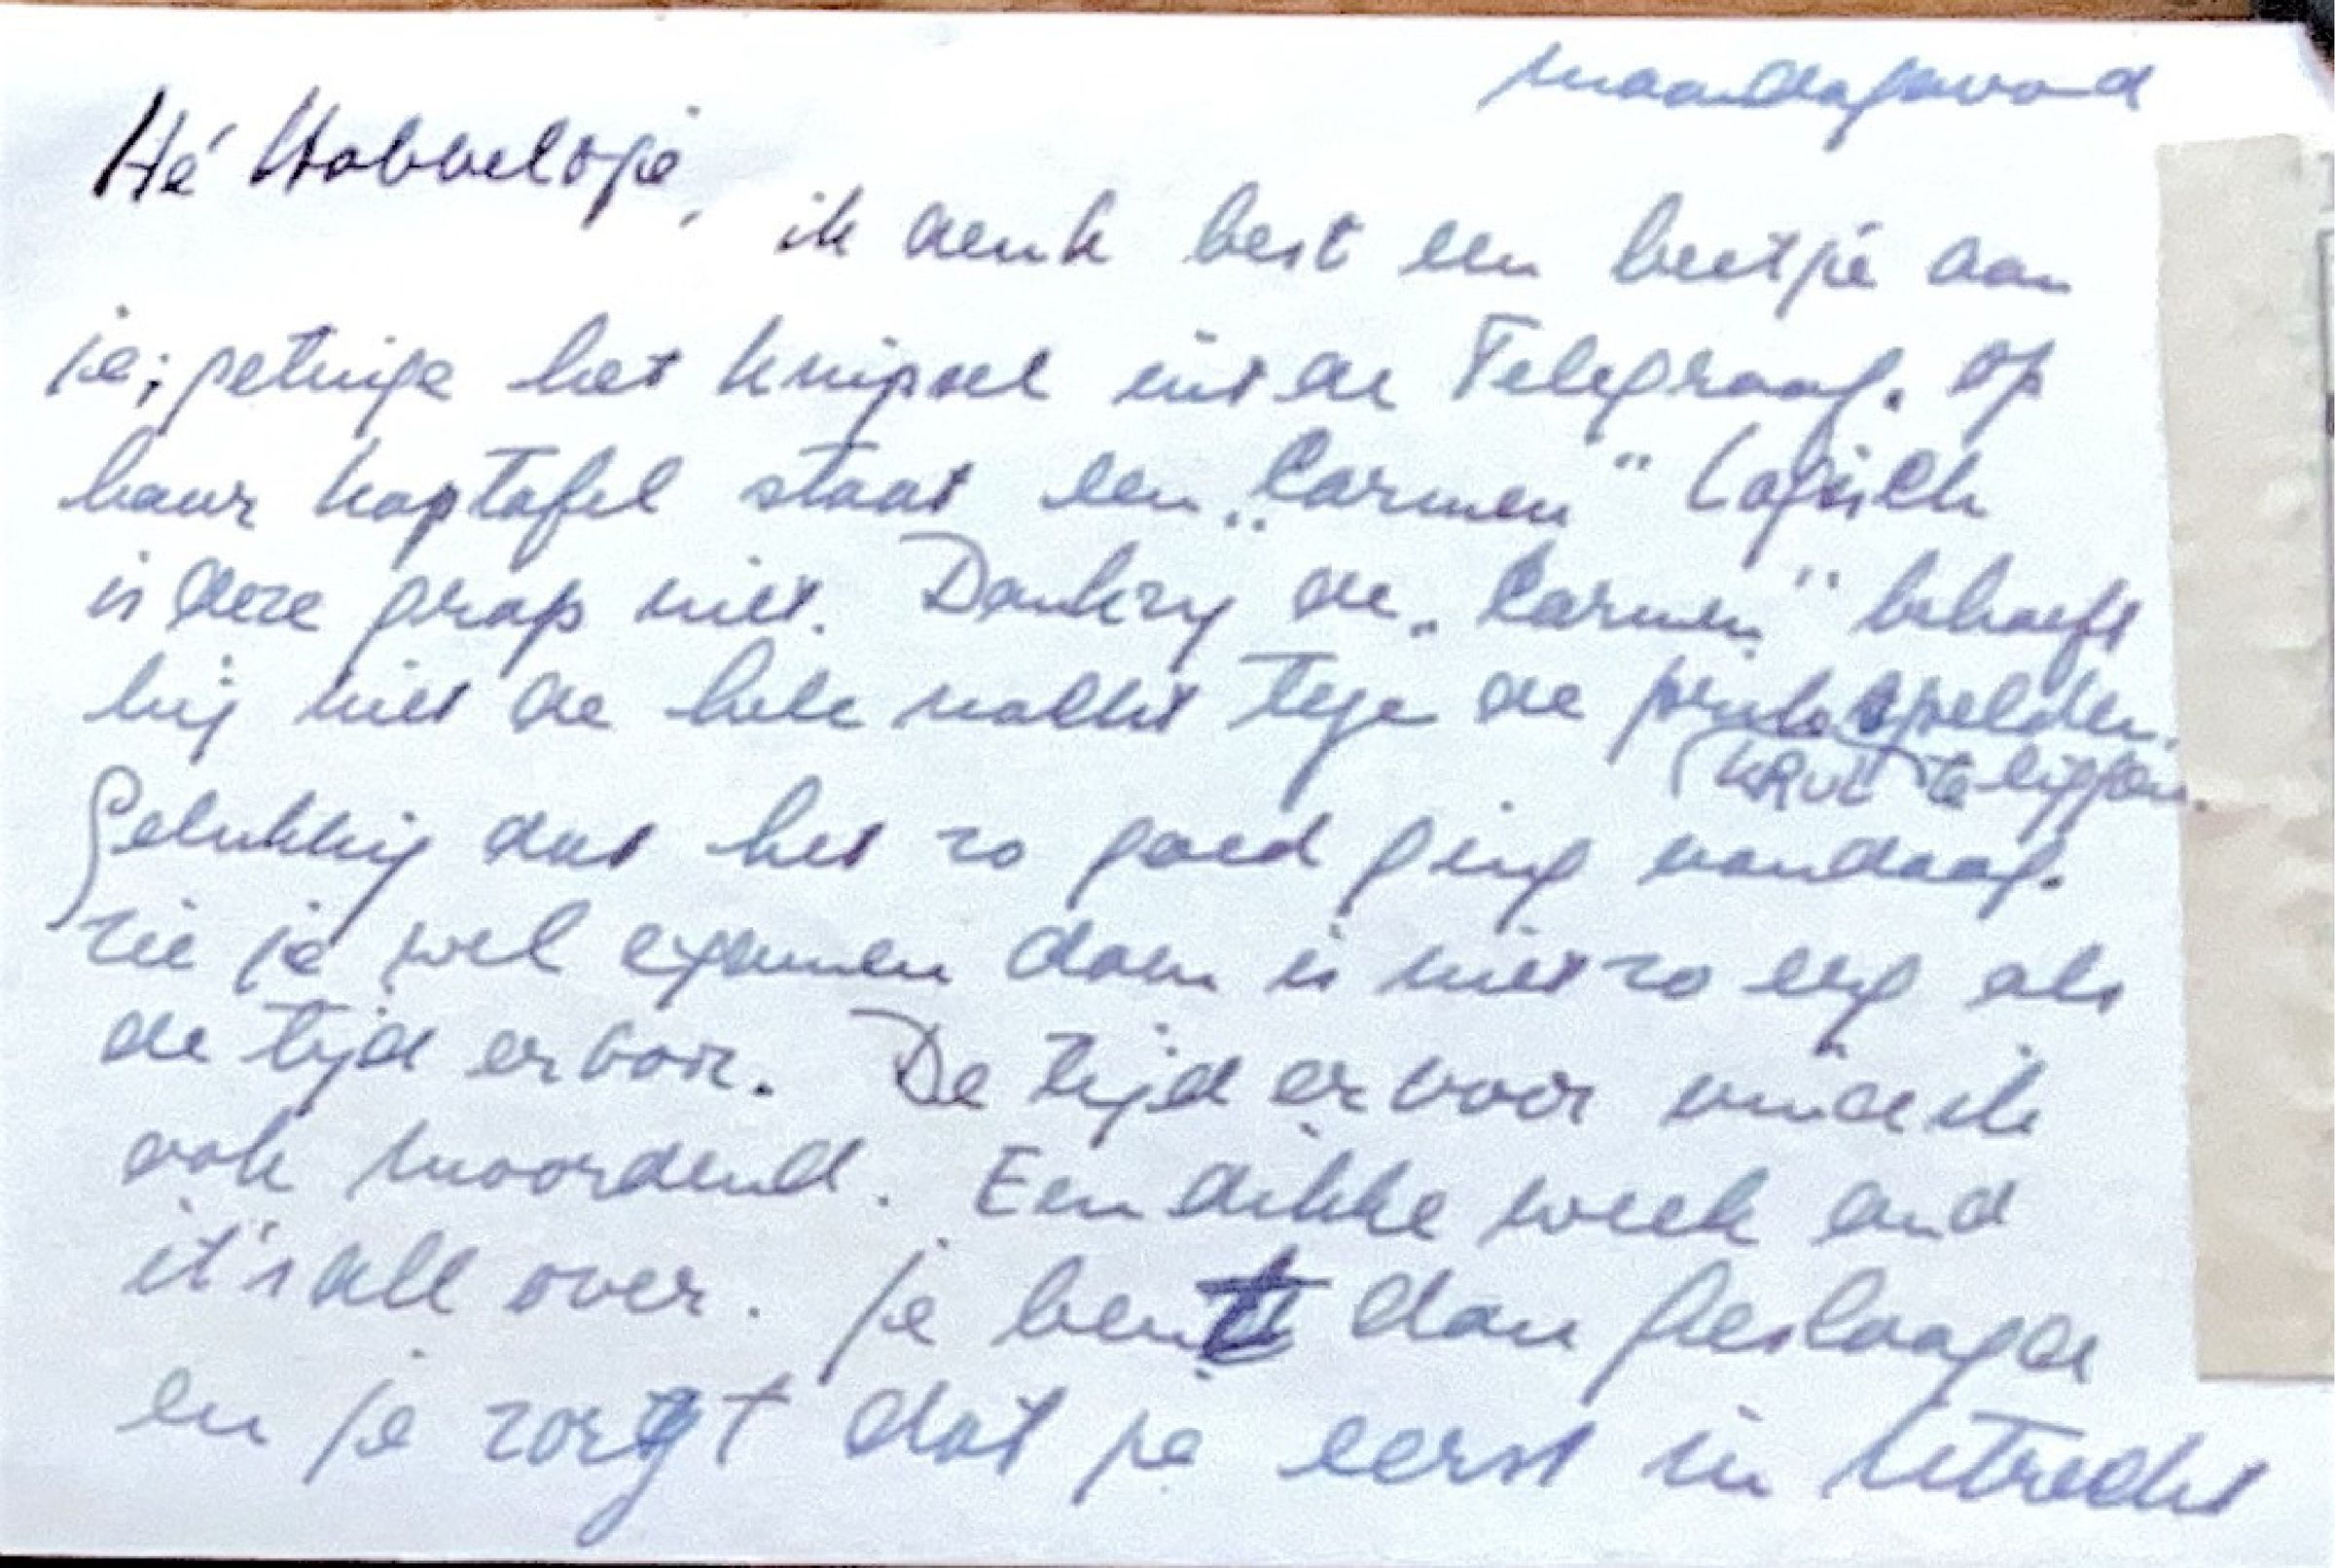 maandagavond
Hé Hobbeltje,
ik denk best een beetje aan
je; getuige het knipsel uit de Telegraaf. Op
haar kaptafel staat een „Carmen" Logisch
is deze grap niet. Dankzij de „Carmen" behoeft
hij niet de hele nacht tege de spelden
(KRUL) te liggen.
Gelukkig dat het zo goed ging vandaag.
Zie je wel examen doen is niet zo erg als
de tijd ervoor. De tijd ervoor vind ik
ook moordend. Een dikke week and
it's all over. Je bent dan geslaagde
en je zorgt dat je eerst in Utrecht